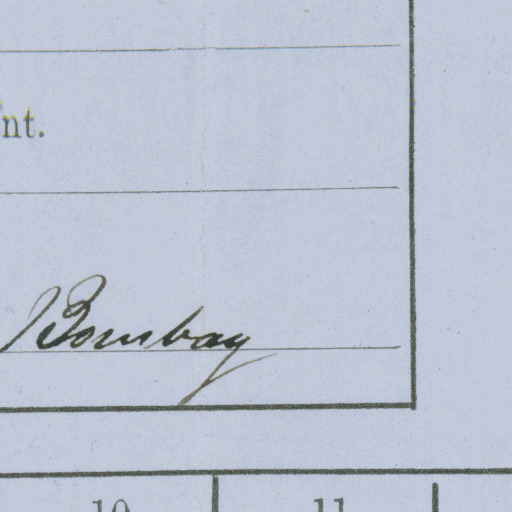 nt.
Bombay
10
11